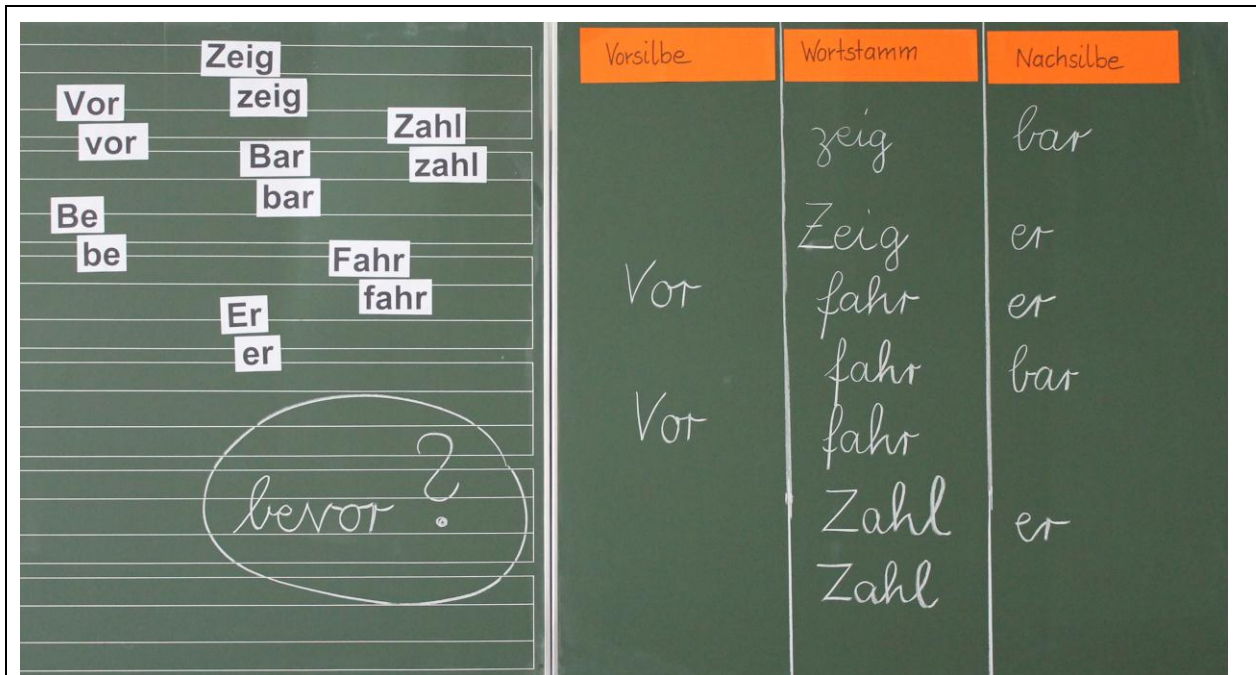 Zeig
zeig
Vor
vor
Zahl
zahl
Bar
bar
Be
be
Fahr
fahr
Er
er
bevor ?
Vorsilbe Wortstamm Nachsilbe
zeig bar
Zeig er
Vor fahr er
fahr bar
Vor fahr
Zahl er
Zahl